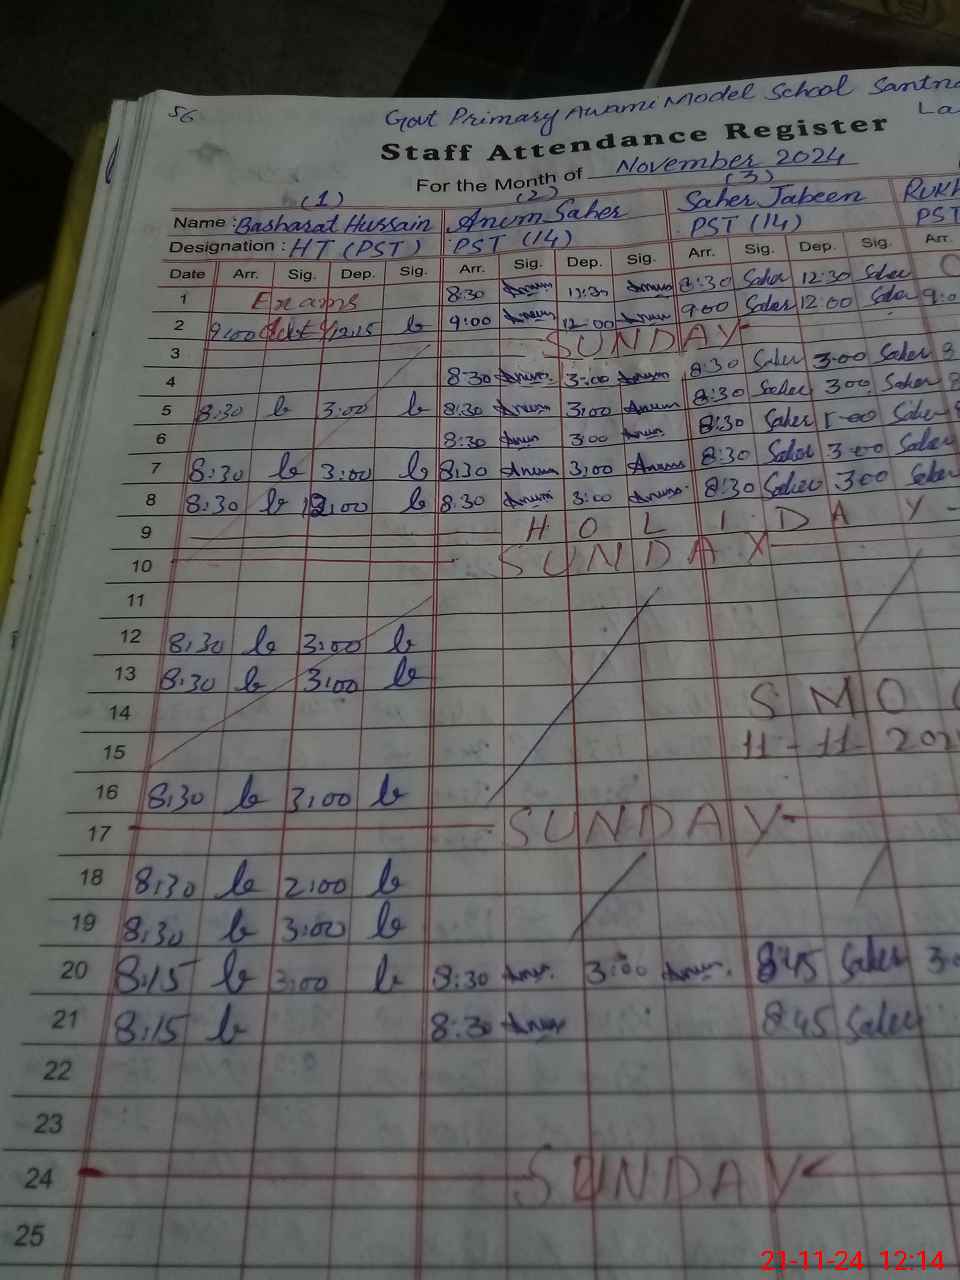 56
Govt Primary Awami Model School
Staff Attendance Register
For the Month of November 2024
(1) (2) (3)
Name : Basharat Hussain Anum Saher Saher Jabeen
Designation : HT (PST) PST (14) PST (14) PST
Date Arr. Sig. Dep. Sig. Arr. Sig. Dep. Sig. Arr. Sig. Dep. Sig. Arr.
1 Exams 8:30 Anum 11:30 Anum 8:30 Saher 12:30 Saher
2 9:00 12:15 9:00 Anum 12:00 Anum 9:00 Saher 12:00 Saher
3 SUNDAY
4 8:30 Anum 3:00 Anum 8:30 Saher 3:00 Saher
5 8:30 3:00 8:30 Anum 3:00 Anum 8:30 Saher 3:00 Saher
6 8:30 Anum 3:00 Anum 8:30 Saher Saher
7 8:30 3:00 8:30 Anum 3:00 Anum 8:30 Saher 3:00 Saher
8 8:30 12:00 8:30 Anum 3:00 Anum 8:30 Saher 3:00 Saher
9 HOLIDAY
10 SUNDAY
11
12 8:30 3:00
13 8:30 3:00
14 SMO
15 11-11-202
16 8:30 3:00
17 SUNDAY
18 8:30 2:00
19 8:30 3:00
20 8:15 3:00 8:30 Anum 3:00 Anum 8:45 Saher
21 8:15 8:30 Anum 8:45 Saher
22
23
24 SUNDAY
25
21-11-24 12:14